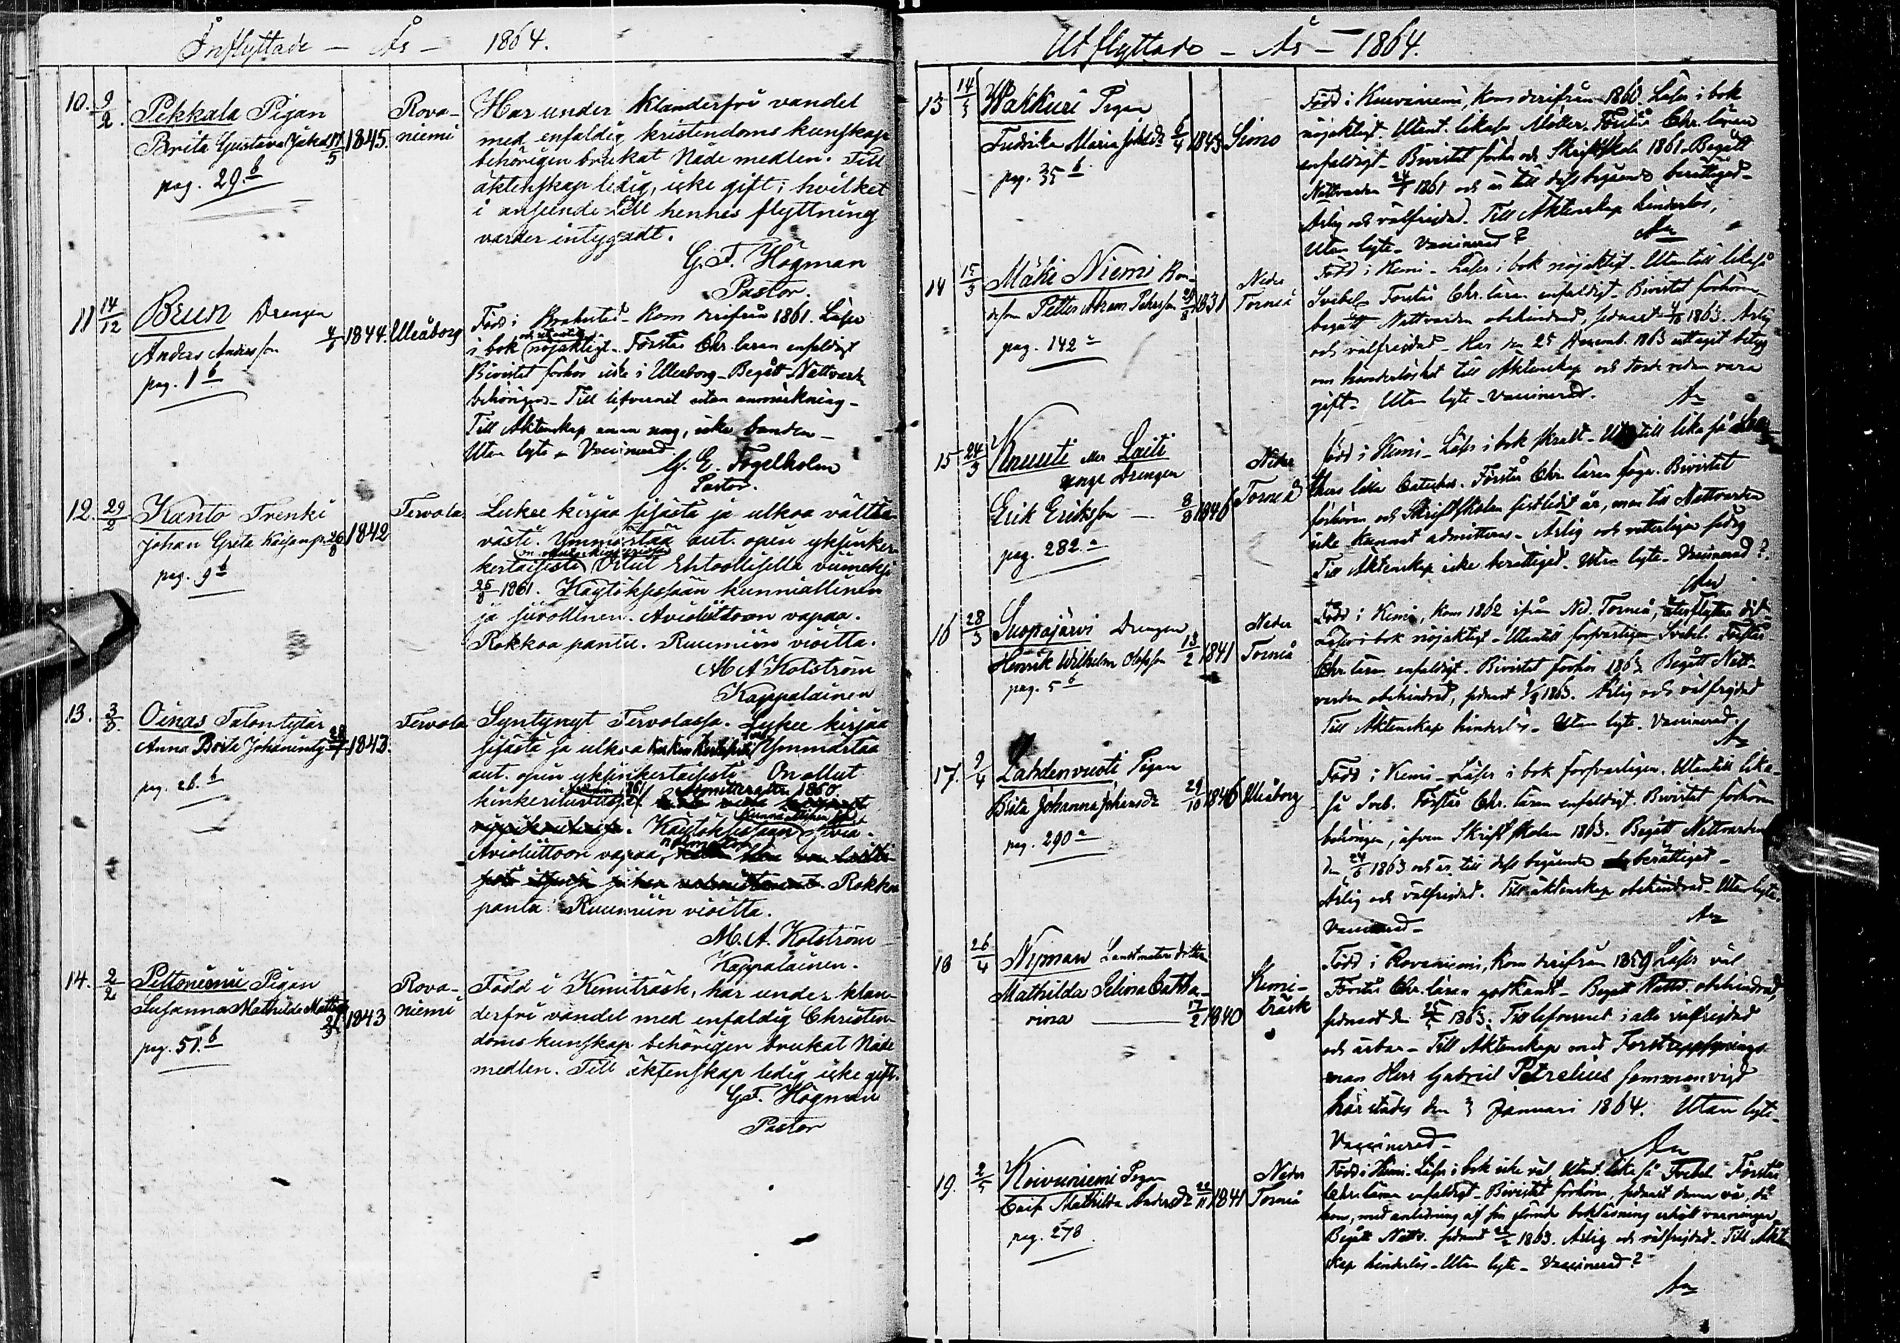 Inflyttade - År - 1864.
10. 9/2 Pekkala Pigan
Brita Gustava Jakobs 17/5 1845.
pag. 29.b
Rova-
niemi
Har under klanderfri vandel
med enfaldig kristendoms kunskap
behörigen brukat Nåde medlen. Till
äktenskap ledig, icke gift; hvilket
i anseende till hennes flyttning
varder intygadt.
G. F. Högman
Pastor.
11 14/12 Brun Drengen
Anders Andersson 1844.
pag. 1 b
Uleåborg
Född i Brahestad - Kom derifrån 1861. Läser
i bok nöjaktigt - Förstår Chr. läran enfaldigt
Bivistat förhör icke i Uleåborg - Begått Nattvard
behörigen - Till lefvernet utan anmärkning -
Till Äktenskap icke bunden -
Utan lyte - Vaccinerad
G. E. Fogelholm
Pastor.
12. 29/2 Kanto Trenki
Johan Greta 1842
pag. 9 b
Tervola
Lukee kirjaa sisästä ja ulkoa välttä-
västi. Ymmärtää aut. opin yksinker-
kertaisesti Ollut Ehtoollisella viimeksi
1861. Käytöksessään kunniallinen
ja siivollinen. Avioliittoon vapaa.
Rokkoa pantu. Ruumiin vioitta.
M. A. Kolström
Kappalainen
13. 3/3. Oinas Talontytär
Anna Brita Johanint. 28/7 1843.
pag. 26. b
Tervola
Syntynyt Tervolassa. Lukee kirjaa
sisästä ja ulkoa Ymmärtää
aut. opin yksinkertaisesti On ollut
1860.
Käytöksessään
Avioliittoon vapaa,
Rokko
pantu. Ruumiin vioitta.
M. A. Kolström
Kappalainen.
14. 2/2 Peltoniemi Pigan
Susanna Mathilda Matts 1843
pag. 51. b
Rova-
niemi
Född i Kemiträsk, har under klan-
derfri vandel med enfaldig Christen-
doms kunskap behörigen brukat Nåde
medlen. Till äktenskap ledig icke gift.
G. F. Högman
Pastor
Utflyttade - År - 1864.
13 14/3 Wakkuri Pigan
Fredrika Maria Johsdr 6/4 1843
pag. 235 b
Simo
Född i Kuivaniemi, Kom derifrån 1860. Läser i bok
nöjaktigt. Utant. likaså Möller. Förstår Chr. läran
enfaldigt - Bivistat förhör och Skriftskola 1861. Begått
Nattvarden 24/ 1861 och är till dess begående berättigad -
Ärlig och välfrejdad. Till Äktenskap hinderlös,
Utan lyte - Vaccinerad?
14 15/3 Mäki Niemi Bon-
deson Petter Abram Petersson 1831
pag. 142 a
Neder
Torneå
Född i Kemi - Läser i bok nöjaktigt - Utantill likaså
Svebel. Förstår Chr. läran enfaldigt - Bivistat förhören
begått Nattvarden obehindrad, sednast 1863. Ärlig
och välfrejdad - Har den 25 Decemb. 1863 uttagit betyg
om hinderlöshet till Äktenskap och torde redan vara
gift - Utan lyte - Vaccinerad.
15 24/3 Knuuti eller Laiti
unge Drengen
Erik Eriksson - 8/8 1846
pag. 282. a
Neder
Torneå
Född i Kemi - Läser i bok skralt - Utantill lika så
lilla Cateches. Förstår Chr. läran föga. Bivistat
förhören och Skriftskolan sistlidit år, men till Nattvarden
icke kunnat admitteras - Ärlig och
Till Äktenskap icke berättigad. Utan lyte - Vaccinerad?
16 28/3 Suopajärvi Drengen
Henrik Wilhelm Olofsson 13/2 1841
pag. 5 b
Neder
Torneå
Född i Kemi, kom 1862 ifrån Ned. Torneå, återflyttar dit
Läser i bok nöjaktigt - Utantill försvarligen Svebel. Förstår
Chr. läran enfaldigt. Bivistat förhör 1863. Begått Natt-
varden obehindrad, sednast 1863. Ärlig och välfrejdad
Till Äktenskap hinderlös - Utan lyte. Vaccinerad.
17. 9/4 Lahdenvuoti Pigan
Brita Johanna Johansdr 29/10 1846
pag. 290 a
Uleåborg
Född i Kemi - Läser i bok försvarligen. Utantill lika
så Sveb. Förstår Chr. läran enfaldigt. Bivistat förhören
behörigen, äfven Skriftskolan 1863. Begått Nattvarden
den 24/ 1863 och är till dess begående berättigad -
Ärlig och välfrejdad. Till äktenskap obehindrad. Utan lyte.
Vaccinerad -
18 26/4 Nyman Landtmätare dotter
Mathilda Selina Catha-
rina - 17/2 1840
Kemi-
träsk
Född i Rovaniemi, Kom derifrån 1859 Läser väl
Förstår Chr. läran godkändt - Begått Nattv. obehindrad,
sednast d. 1863. Till lefvernet i allo välfrejdad
och ärbar - Till Äktenskap med Forstuppsynings-
man Herr Gabriel Petrelius sammanvigd
härstädes den 3 Januari 1864. Utan lyte -
Vaccinerad -
19. 2/5 Koivuniemi Pigan
Caisa Mathilda Andersdr 22/11 1841
pag. 278.
Neder
Torneå
Född i Kemi. Läser i bok icke väl. Utant. lika så Svebel Förstår
Chr. läran enfaldigt - Bivistat förhören, sednast denna vår, då
hon, med anledning af sin bokläsning erhöll varningar
Begått Nattv. sednast 1863. Ärlig och välfrejdad - Till Äkten-
skap hinderlös - Utan lyte - Vaccinerad?